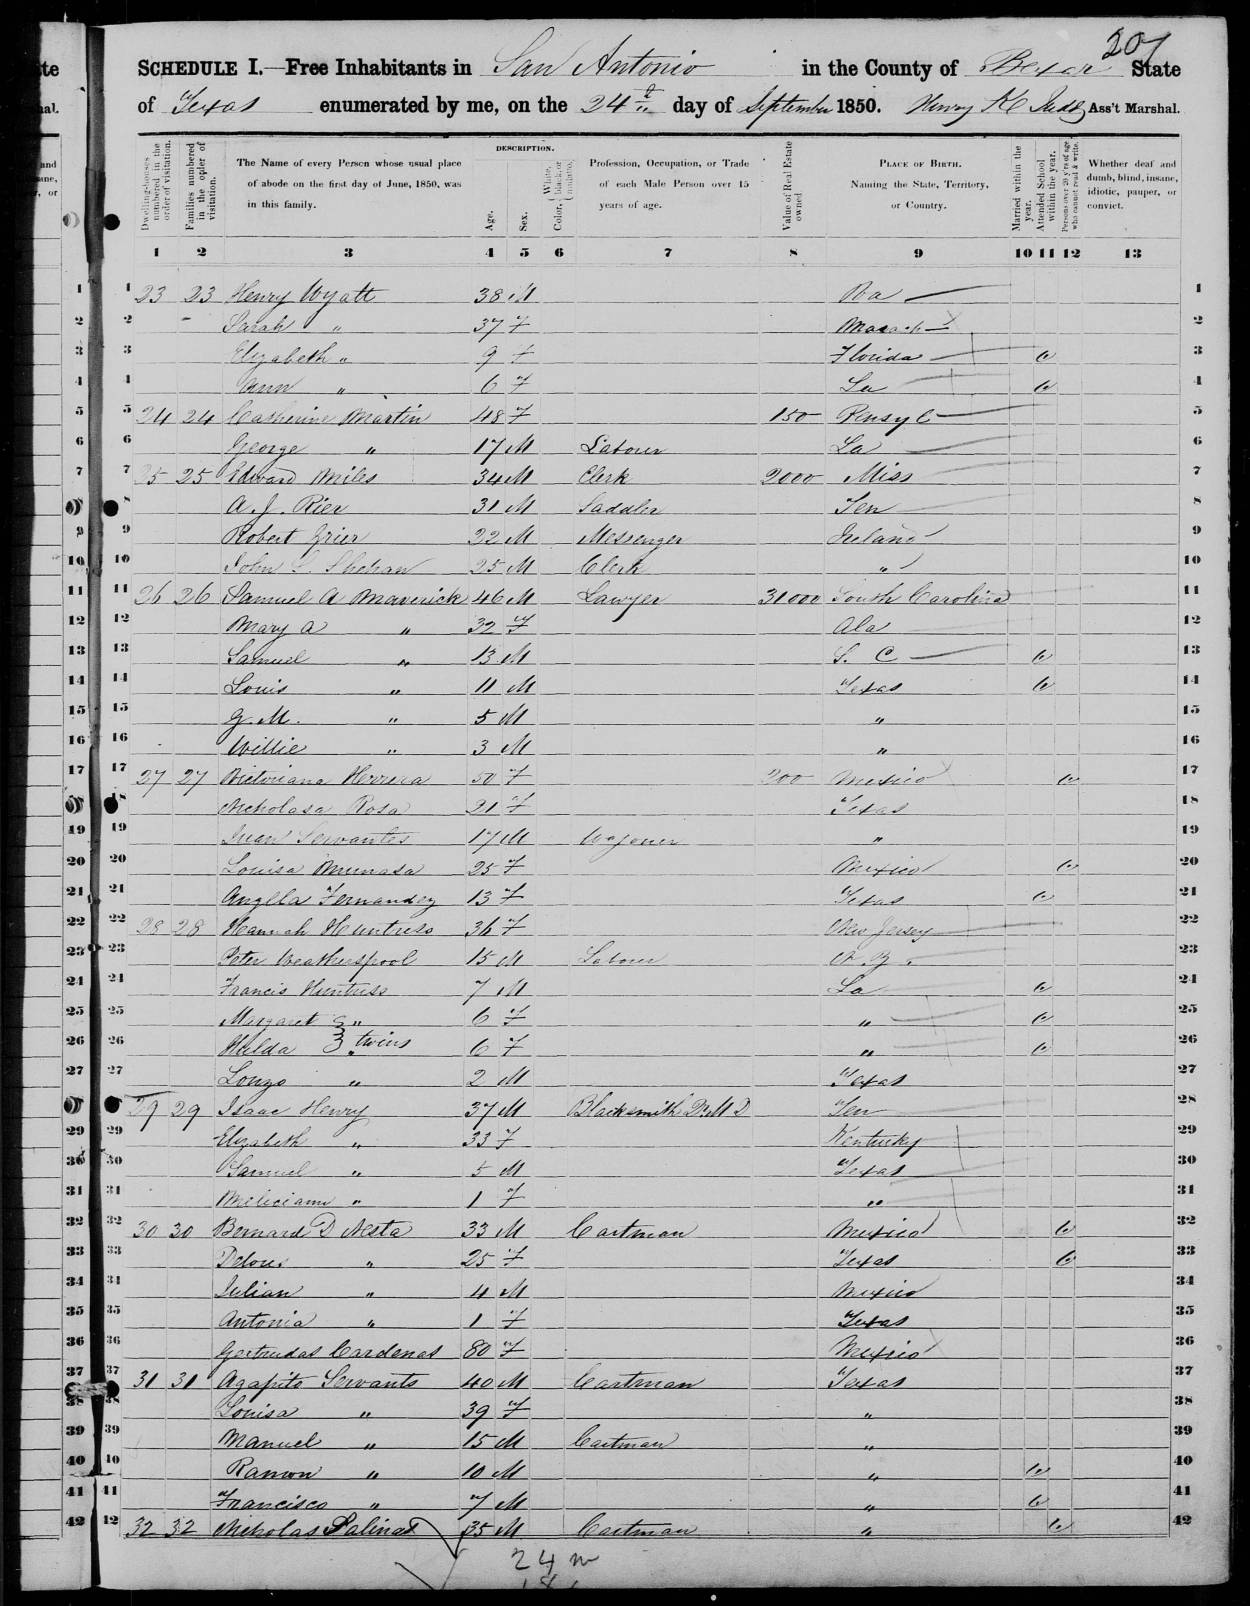 207
SCHEDULE I.—Free Inhabitants in San Antonio in the County of Bexar State
of Texas enumerated by me, on the 24th day of September 1850. Henry K Judd Ass't Marshal.
Dwelling-houses numbered in the order of visitation.
Families numbered in the order of visitation.
The Name of every Person whose usual place of abode on the first day of June, 1850, was in this family.
DESCRIPTION.
Age.
Sex.
Color, { White, black, or mulatto.
Profession, Occupation, or Trade of each Male Person over 15 years of age.
Value of Real Estate owned
PLACE OF BIRTH. Naming the State, Territory, or Country.
Married within the year.
Attended School within the year.
Persons over 20 y'rs of age who cannot read & write.
Whether deaf and dumb, blind, insane, idiotic, pauper, or convict.
1 2 3 4 5 6 7 8 9 10 11 12 13
1 23 23 Henry Wyatt 38 M 1
2 Sarah " 37 F 2
3 Elizabeth " 9 F Florida 3
4 Ann " 6 F La 4
5 24 24 Catherine Martin 48 F 150 5
6 George " 17 M Labour La 6
7 25 25 Edward Miles 34 M Clerk 2000 Miss 7
8 A. J. Rier 31 M Saddler Ten 8
9 Robert Grier 22 M Messenger Ireland 9
10 John Shehan 25 M Clerk " 10
11 26 26 Samuel A Maverick 46 M Lawyer 31000 South Carolina 11
12 Mary A " 32 F Ala 12
13 Samuel " 13 M S. C 13
14 Louis " 11 M Texas 14
15 G. M. " 5 M " 15
16 Willie " 3 M " 16
17 27 27 Victoriana Herrera 50 F 200 Mexico 17
18 Nicholasa Rosa 21 F Texas 18
19 Juan Servantes 17 M Wagoner " 19
20 Louisa 25 F Mexico 20
21 Angella Fernandez 13 F Texas 21
22 28 28 Hannah Huntress 36 F New Jersey 22
23 Peter Weatherspool 15 M Labour 23
24 Francis Huntress 7 M La 24
25 Margaret } " 6 F " 25
26 Hulda } twins " 6 F " 26
27 Lonzo " 2 M Texas 27
28 29 29 Isaac Henry 37 M Blacksmith Ten 28
29 Elizabeth " 33 F Kentucky 29
30 Samuel " 5 M Texas 30
31 " 1 F " 31
32 30 30 Bernard D Nesta 33 M Cartman Mexico 32
33 Delores " 25 F Texas 33
34 Julian " 4 M Mexico 34
35 Antonia " 1 F Texas 35
36 Gertrudas Cardenas 80 F Mexico 36
37 31 31 Agapito Servants 40 M Cartman Texas 37
38 Louisa " 39 F " 38
39 Manuel " 15 M Cartman " 39
40 Ramon " 10 M " 40
41 Francisco " 7 M " 41
42 32 32 Nicholas Salinas 35 M Cartman " 42
24 m